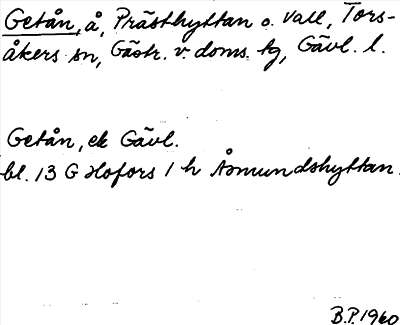 Getån, å, Prästhyttan o. Vall, Tors-
åkers sn, Gästr. v. doms. tg, Gävl. l.
Getån, ek Gävl.
bl. 13 G Hofors 1 h Åsmundshyttan.
B.P. 1960